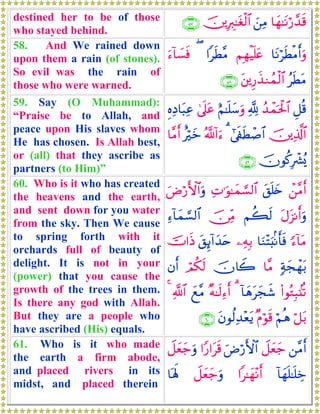 destined her to be of those
who stayed behind.
قَدَّرْنَٰهَا مِنَ ٱلْغَٰبِرِينَ ﴿٥٧﴾
58. And We rained down
upon them a rain (of stones).
So evil was the rain of
those who were warned.
وَأَمْطَرْنَا عَلَيْهِم مَّطَرًا ۖ فَسَآءَ
مَطَرُ ٱلْمُنذَرِينَ ﴿٥٨﴾
59. Say (O Muhammad):
“Praise be to Allah, and
peace upon His slaves whom
He has chosen. Is Allah best,
or (all) that they ascribe as
partners (to Him)”
قُلِ ٱلْحَمْدُ لِلَّهِ وَسَلَٰمٌ عَلَىٰ عِبَادِهِ
ٱلَّذِينَ ٱصْطَفَىٰٓ ۗ ءَآللَّهُ خَيْرٌ أَمَّا
يُشْرِكُونَ ﴿٥٩﴾
60. Who is it who has created
the heavens and the earth,
and sent down for you water
from the sky. Then We cause
to spring forth with it
orchards full of beauty of
delight. It is not in your
(power) that you cause the
growth of the trees in them.
Is there any god with Allah.
But they are a people who
have ascribed (His) equals.
أَمَّنْ خَلَقَ ٱلسَّمَٰوَٰتِ وَٱلْأَرْضَ
وَأَنزَلَ لَكُم مِّنَ ٱلسَّمَآءِ
مَآءً فَأَنۢبَتْنَا بِهِۦ حَدَآئِقَ ذَاتَ
بَهْجَةٍ مَّا كَانَ لَكُمْ أَن
تُنۢبِتُوا۟ شَجَرَهَآ ۗ أَءِلَٰهٌ مَّعَ ٱللَّهِ ۚ
بَلْ هُمْ قَوْمٌ يَعْدِلُونَ ﴿٦٠﴾
61. Who is it who made
the earth a firm abode,
and placed rivers in its
midst, and placed therein
أَمَّن جَعَلَ ٱلْأَرْضَ قَرَارًا وَجَعَلَ
خِلَٰلَهَآ أَنْهَٰرًا وَجَعَلَ لَهَا